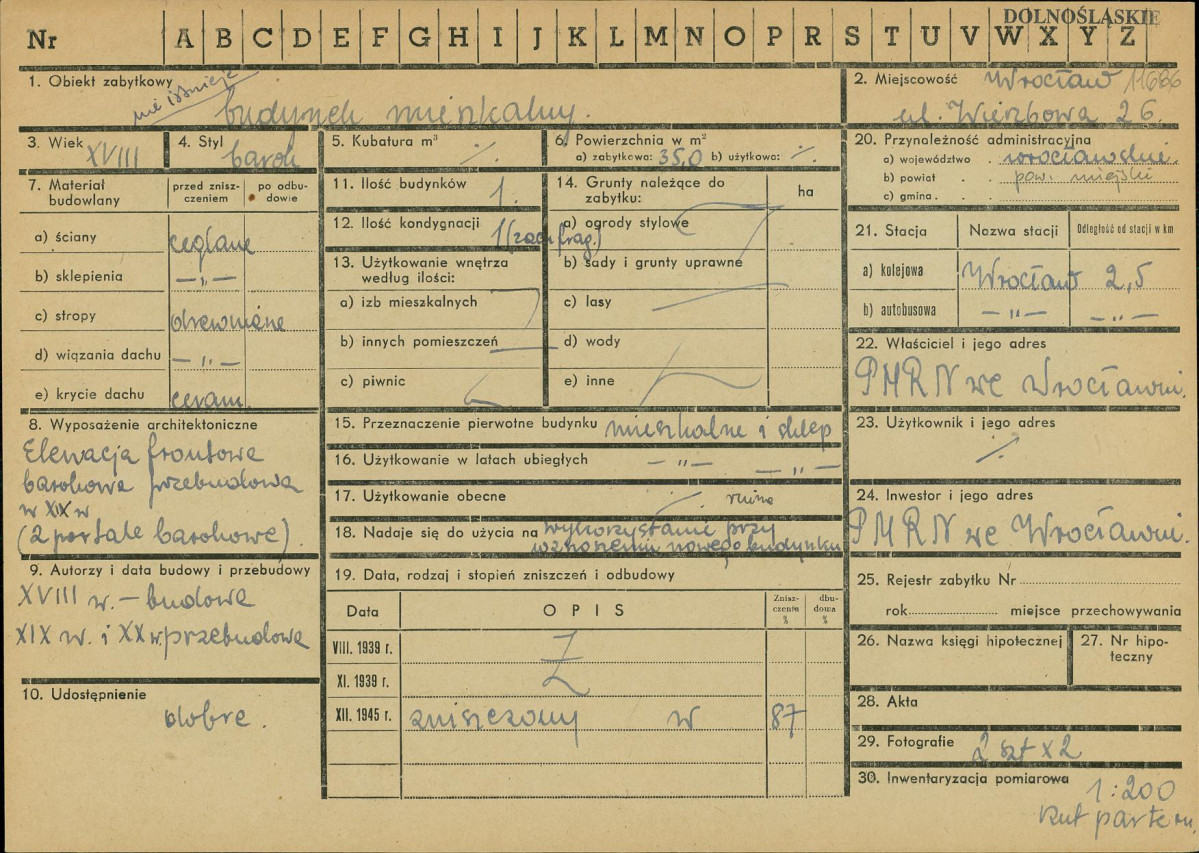 DOLNOŚLĄSKIE
Nr A B C D E F G H I J K L M N O P R S T U V W X Y Z
1. Obiekt zabytkowy
nie istnieje
budynek mieszkalny.
2. Miejscowość Wrocław 11686
ul. Wierzbowa 26.
3. Wiek XVIII
4. Styl barok
5. Kubatura m³ %
6. Powierzchnia w m²
a) zabytkowa: 35,0 b) użytkowa: %
20. Przynależność administracyjna
a) województwo . wrocławskie.
b) powiat . . pow. miejski
c) gmina . . .
7. Materiał budowlany
przed znisz-
czeniem
po odbu-
dowie
a) ściany ceglane
b) sklepienia — „ —
c) stropy drewniane
d) wiązania dachu — „ —
e) krycie dachu ceram.
11. Ilość budynków 1.
12. Ilość kondygnacji 1 (zach. frag.)
13. Użytkowanie wnętrza
według ilości:
a) izb mieszkalnych
b) innych pomieszczeń
c) piwnic
14. Grunty należące do
zabytku:
ha
a) ogrody stylowe
b) sady i grunty uprawne
c) lasy
d) wody
e) inne
21. Stacja Nazwa stacji Odległość od stacji w km
a) kolejowa Wrocław 2,5
b) autobusowa — „ — — „ —
22. Właściciel i jego adres
PMRN we Wrocławiu.
8. Wyposażenie architektoniczne
Elewacja frontowa
barokowa przebudowa
w XIX w
(2 portale barokowe).
15. Przeznaczenie pierwotne budynku mieszkalne i sklep
16. Użytkowanie w latach ubiegłych — „ — — „ —
17. Użytkowanie obecne ruina
18. Nadaje się do użycia na wykorzystanie przy
wznoszeniu nowego budynku
23. Użytkownik i jego adres
%
24. Inwestor i jego adres
PMRN we Wrocławiu.
9. Autorzy i data budowy i przebudowy
XVIII w. — budowa
XIX w. i XX w. przebudowa
10. Udostępnienie
dobre.
19. Data, rodzaj i stopień zniszczeń i odbudowy
Data OPIS
Znisz-
czenia
%
dbu-
dowa
%
VIII. 1939 r.
XI. 1939 r.
XII. 1945 r. zniszczony w 87
25. Rejestr zabytku Nr
rok miejsce przechowywania
26. Nazwa księgi hipotecznej
27. Nr hipo-
teczny
28. Akta
29. Fotografie 2 szt x 2
30. Inwentaryzacja pomiarowa
1:200
Rzut parteru.